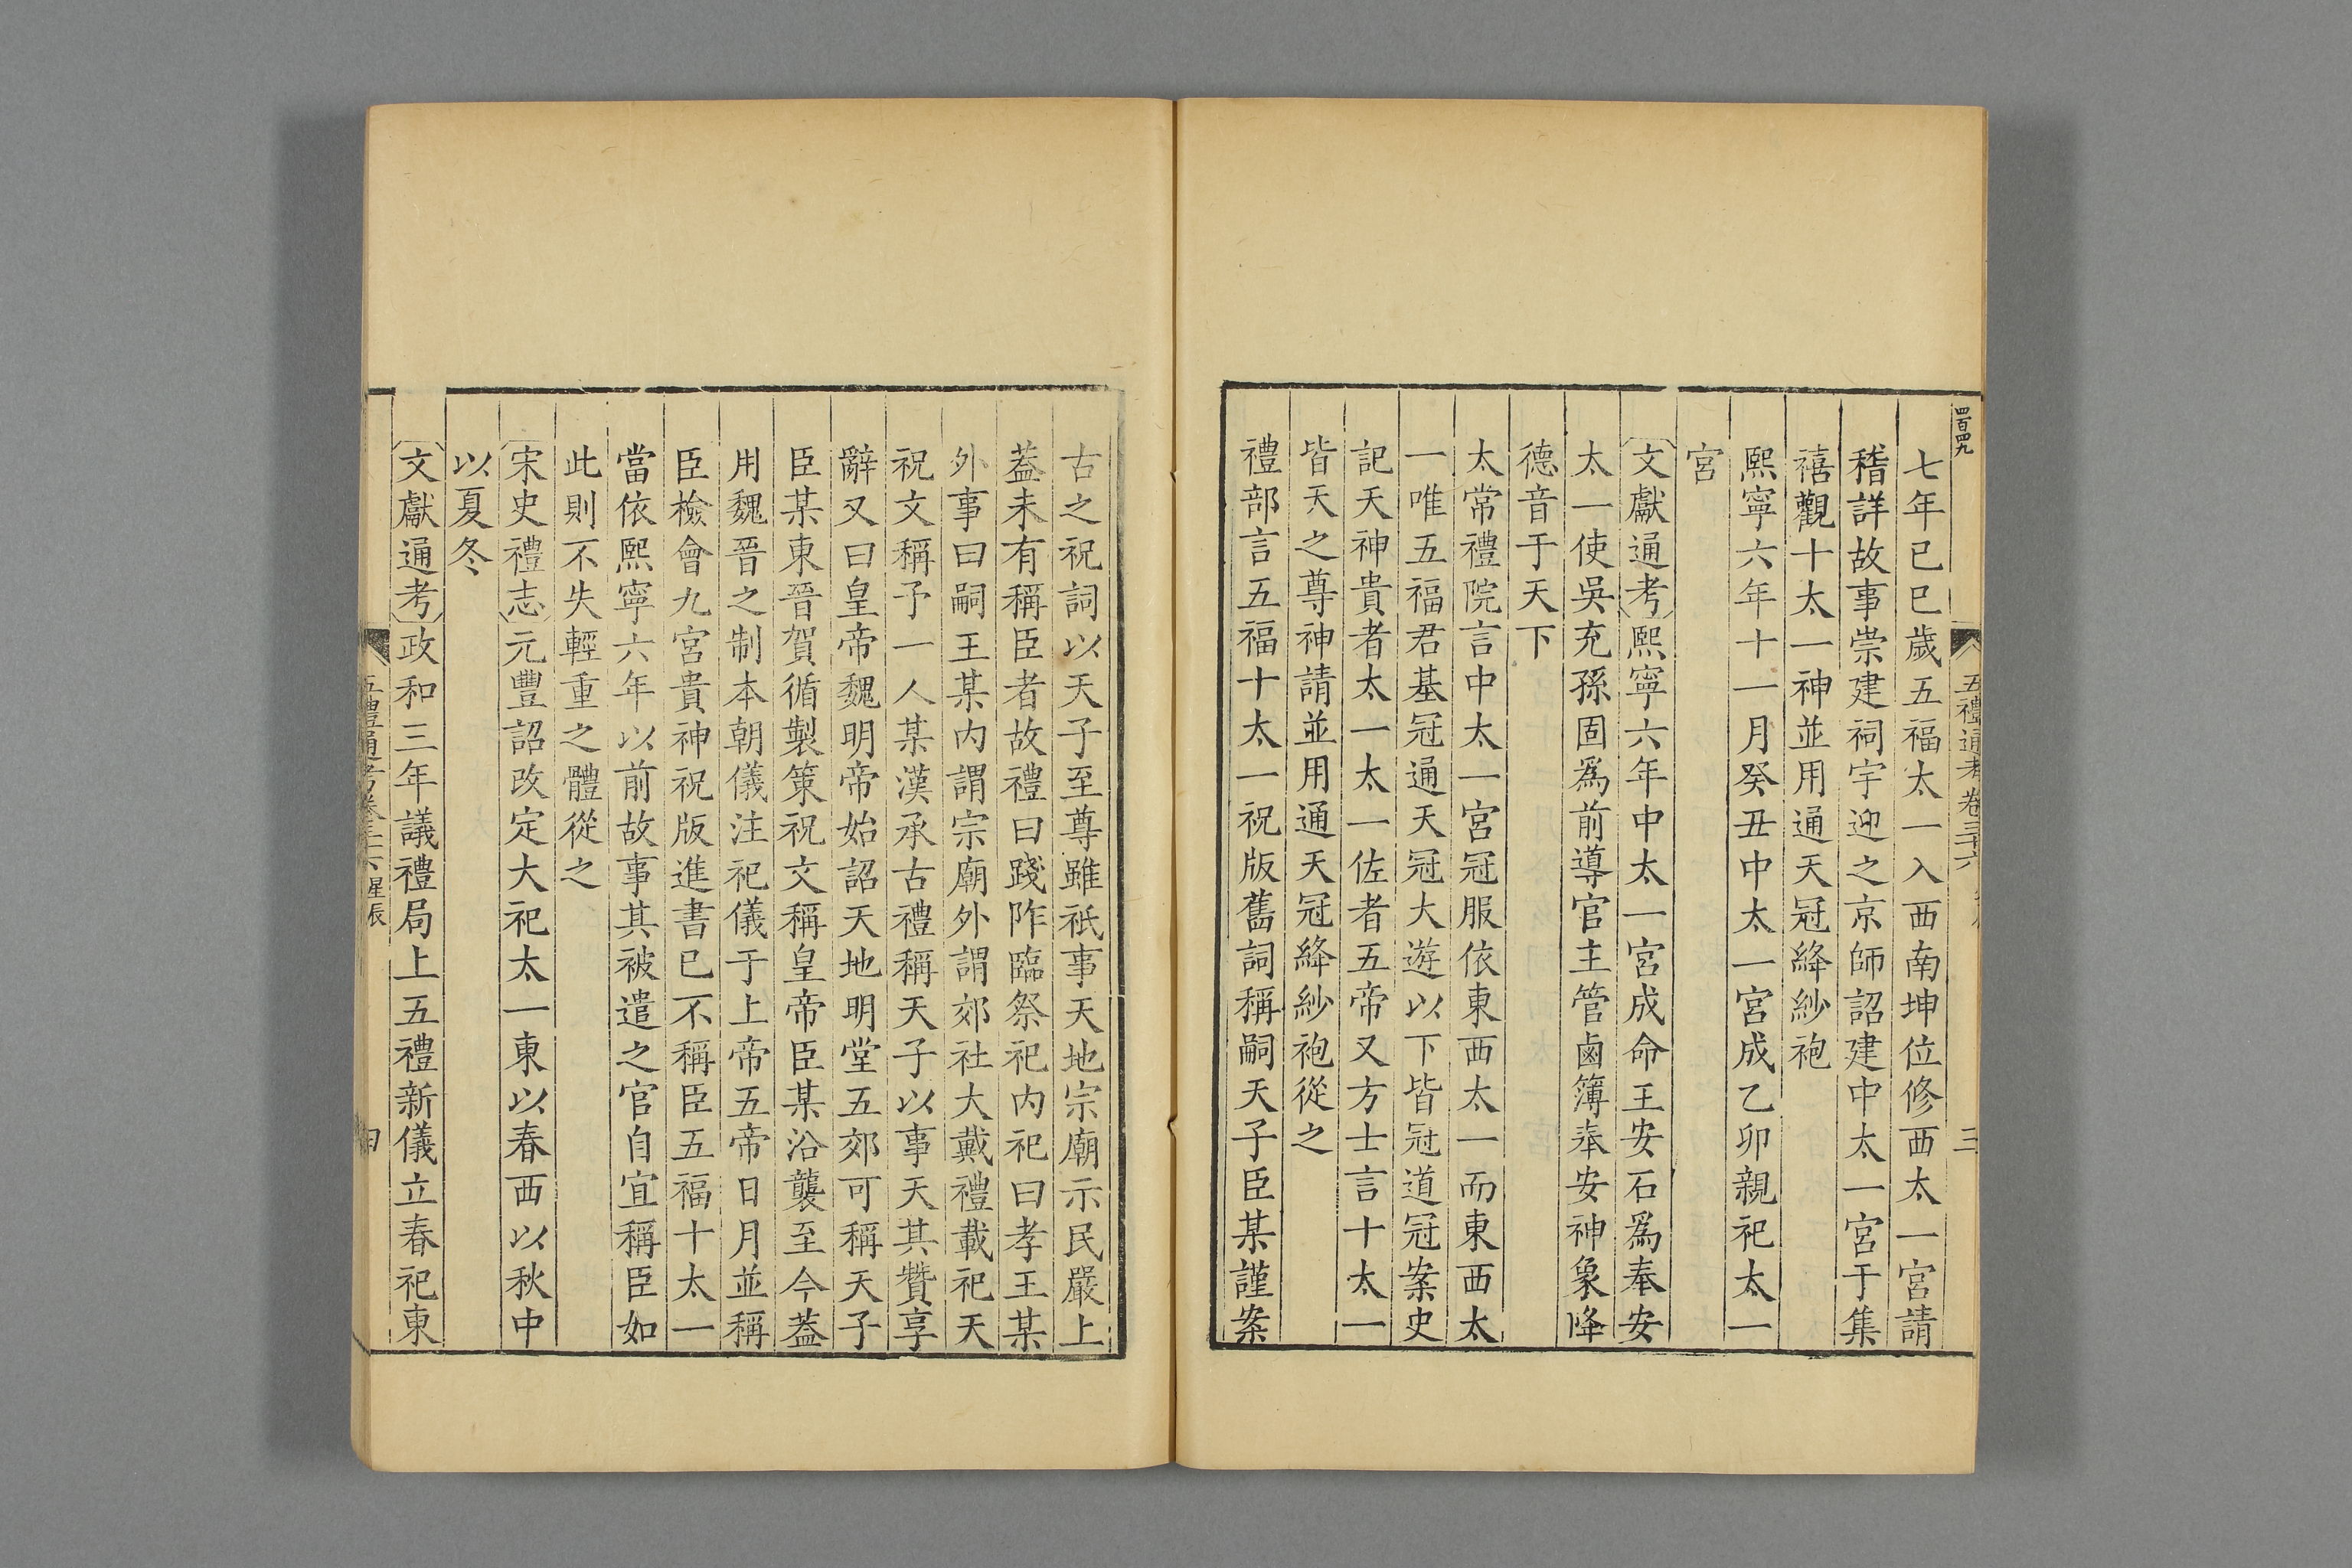 四百四九
五禮通考卷三十六
三
七年己巳歲五福太一入西南坤位修西太一宮請
稽詳故事崇建祠宇迎之京師詔建中太一宮于集
禧觀十太一神並用通天冠絳紗袍
熙寧六年十一月癸丑中太一宮成乙卯親祀太一
宮
文獻通考熙寧六年中太一宮成命王安石爲奉安
太一使吳充孫固爲前導官主管鹵簿奉安神象降
德音于天下
太常禮院言中太一宮冠服依東西太一而東西太
一唯五福君基冠通天冠大遊以下皆冠道冠案史
記天神貴者太一太一佐者五帝又方士言十太一
皆天之尊神請並用通天冠絳紗袍從之
禮部言五福十太一祝版舊詞稱嗣天子臣某謹案
古之祝詞以天子至尊雖祇事天地宗廟示民嚴上
蓋未有稱臣者故禮曰踐阼臨祭祀內祀曰孝王某
外事曰嗣王某內謂宗廟外謂郊社大戴禮載祀天
祝文稱予一人某漢承古禮稱天子以事天其贊享
辭又曰皇帝魏明帝始詔天地明堂五郊可稱天子
臣某東晉賀循製策祝文稱皇帝臣某沿襲至今蓋
用魏晉之制本朝儀注祀儀于上帝五帝日月並稱
臣檢會九宮貴神祝版進書已不稱臣五福十太一
當依熙寧六年以前故事其被遣之官自宜稱臣如
此則不失輕重之體從之
宋史禮志元豐詔改定大祀太一東以春西以秋中
以夏冬
文獻通考政和三年議禮局上五禮新儀立春祀東
五禮通考卷三十六 星辰